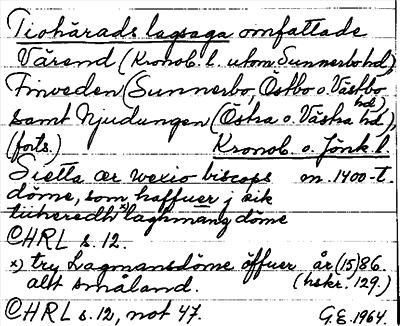 Tiohärads lagsaga omfattade
Värend (Kronob. l. utom Sunnerbo hd),
Finveden (Sunnerbo, Östbo o. Västbo
hd)
samt Njudungen (Östra o. Västra hd),
(forts.) Kronob. o. Jönk. l.
Sietta ær wexio biscops m. 1400-t.
döme, som haffuer j sik
tiiheredh x) laghmanz döme
CHRL s. 12.
x) try Lagmansdöme öffuer år (15)86.
alt småland. (hskr. 129.)
CHRL s. 12, not 47. G.E. 1964.